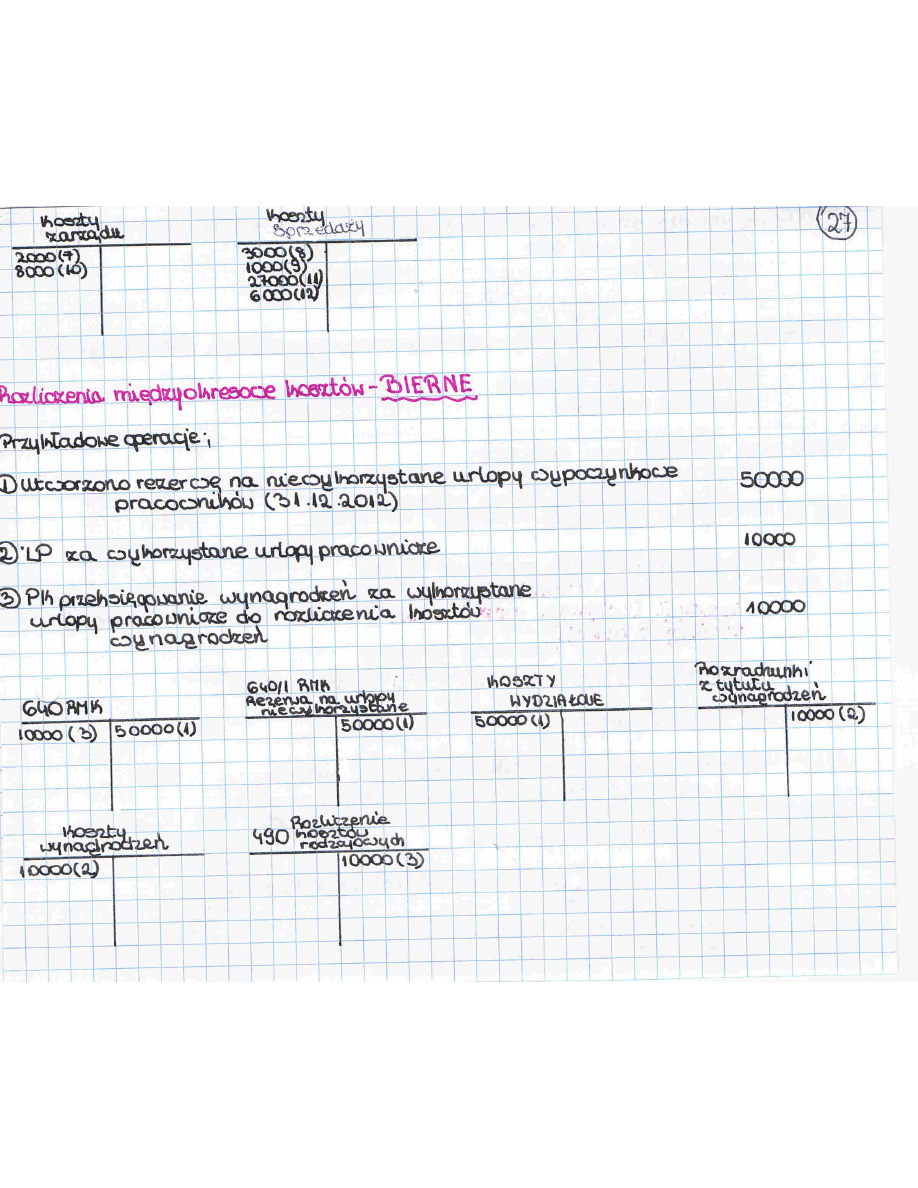 Koszty
zarządu
2000 (7)
8000 (10)
Koszty
Sprzedaży
3000 (8)
1000 (9)
27000 (11)
6000 (12)
27
Rozliczenia międzyokresowe kosztów - BIERNE
Przykładowe operacje;
1) Utworzono rezerwę na niewykorzystane urlopy wypoczynkowe 50000
pracowników (31.12.2012)
2) LP za wykorzystane urlopy pracownicze 10000
3) PK przeksięgowanie wynagrodzeń za wykorzystane
urlopy pracownicze do rozliczenia kosztów 10000
wynagrodzeń
640 RMK
10000 (3) 50000 (1)
640/1 RMK
Rezerwa na urlopy
niewykorzystane
50000 (1)
KOSZTY
WYDZIAŁOWE
50000 (1)
Rozrachunki
z tytułu
wynagrodzeń
10000 (2)
Koszty
wynagrodzeń
10000 (2)
490 Rozliczenie
kosztów
rodzajowych
10000 (3)